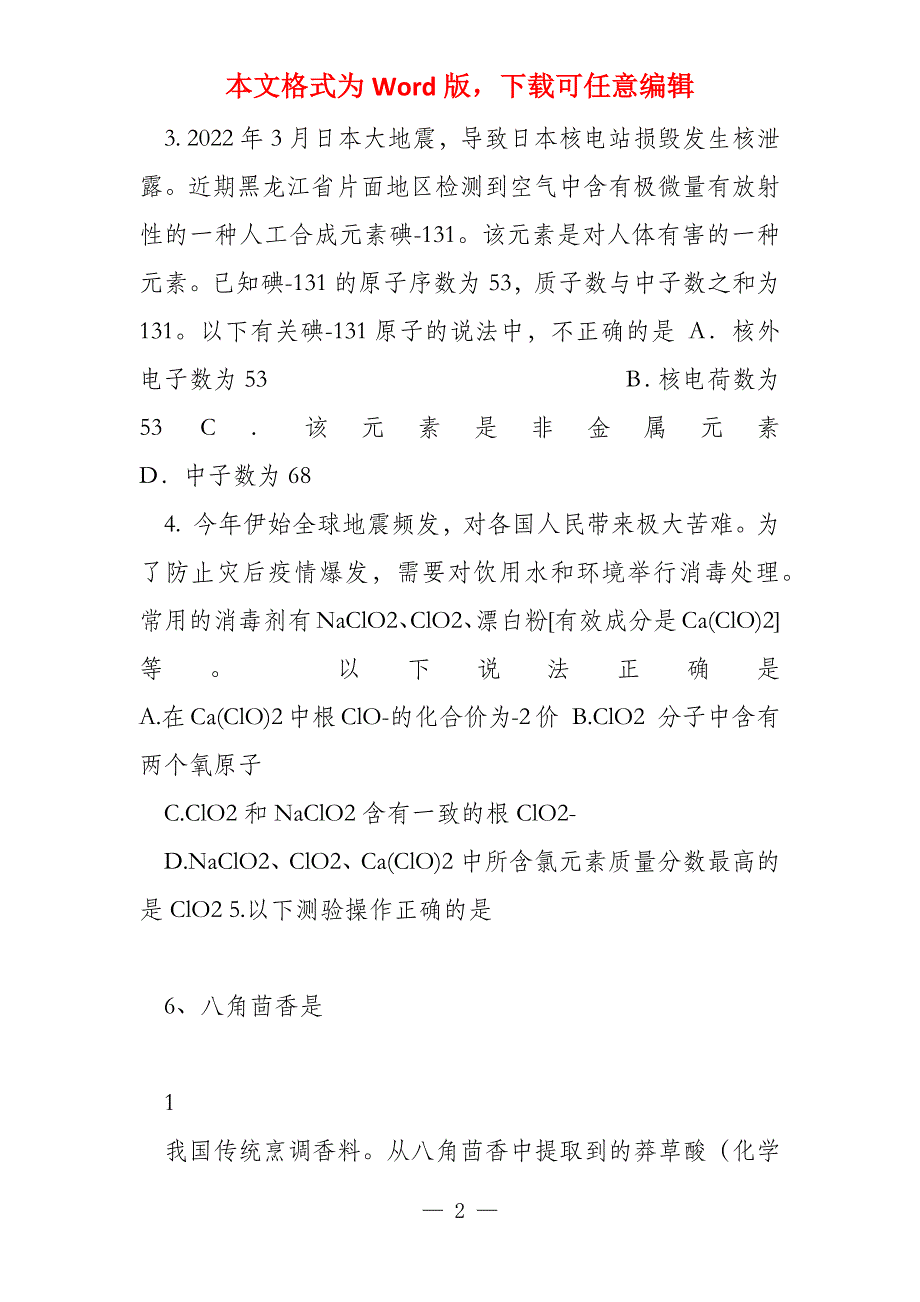 本文格式为 Word 版，下载可任意编辑
3. 2022 年 3 月日本大地震，导致日本核电站损毁发生核泄
露。近期黑龙江省片面地区检测到空气中含有极微量有放射
性的一种人工合成元素碘-131。该元素是对人体有害的一种
元素。已知碘-131 的原子序数为 53，质子数与中子数之和为
131。以下有关碘-131 原子的说法中，不正确的是 A．核外
电子数为 53 B．核电荷数为
53 C ． 该 元 素 是 非 金 属 元 素
D．中子数为 68
4. 今年伊始全球地震频发，对各国人民带来极大苦难。为
了防止灾后疫情爆发，需要对饮用水和环境举行消毒处理。
常用的消毒剂有 NaClO2、ClO2、漂白粉[有效成分是 Ca(ClO)2]
等 。 以 下 说 法 正 确 是
A.在 Ca(ClO)2 中根 ClO-的化合价为-2 价 B.ClO2 分子中含有
两个氧原子
C.ClO2 和 NaClO2 含有一致的根 ClO2-
D.NaClO2、ClO2、Ca(ClO)2 中所含氯元素质量分数最高的
是 ClO2 5.以下测验操作正确的是
6、八角茴香是
1
我国传统烹调香料。从八角茴香中提取到的莽草酸（化学
— 2 —